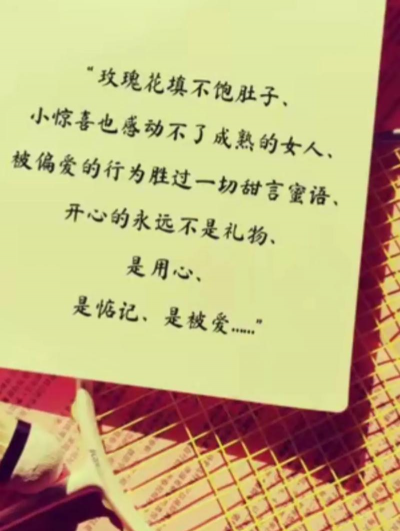 “玫瑰花填不饱肚子、
小惊喜也感动不了成熟的女人、
被偏爱的行为胜过一切甜言蜜语、
开心的永远不是礼物、
是用心、
是惦记、是被爱……”